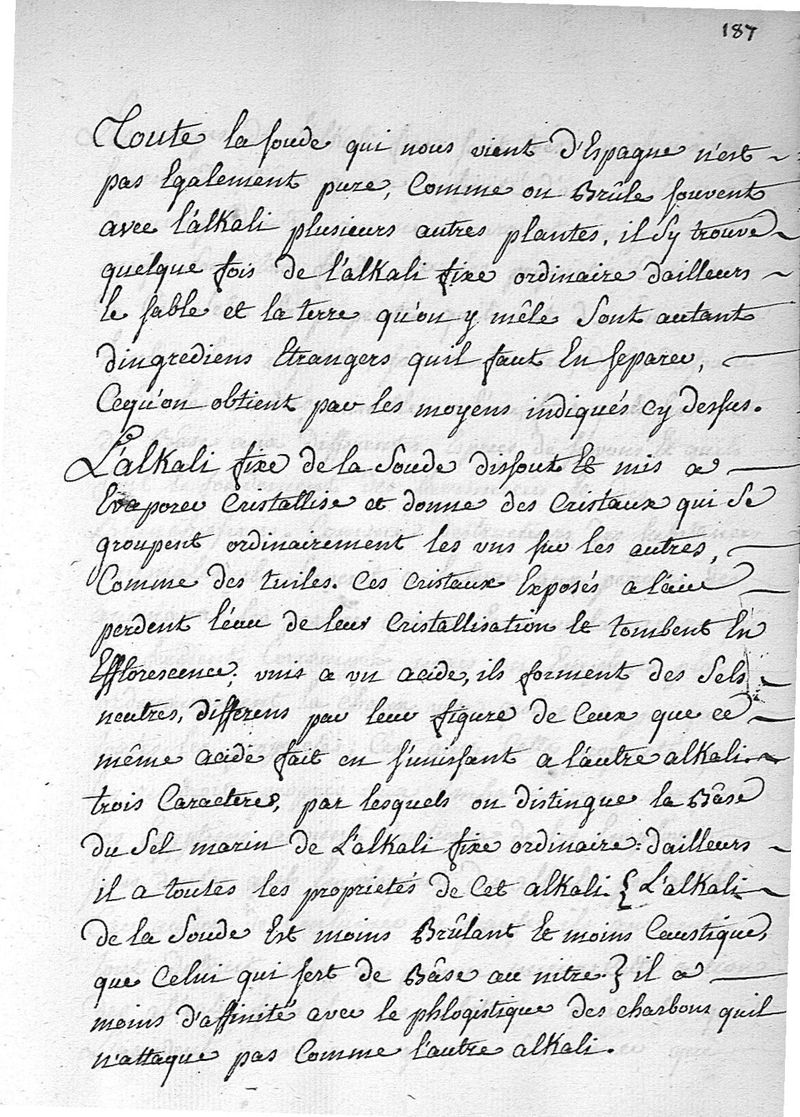 187
Toute la soude qui nous vient d'Espagne n'est
pas Egalement pure, Comme on Brûle souvent
avec l'alkali plusieurs autres plantes, il s'y trouve
quelque fois de l'alkali fixe ordinaire dailleurs
le sable et la terre qu'on y mêle sont autant
dingrediens Etrangers quil faut En separer,
Cequ'on obtient par les moyens indiqués cy dessus.
L'alkali fixe de la Soude dissout Et mis a
Evaporer Cristallise et donne des Cristaux qui se
groupent ordinairement les uns sur les autres,
Comme des tuiles. Ces Cristaux Exposés a l'air
perdent l'eau de leur Cristallisation Et tombent En
Efflorescence; unis a un acide, ils forment des Sels
neutres, differens par leur figure de Ceux que ce
même acide fait en s'unissant a l'autre alkali.
trois Caracteres, par lesquels on distingue la Bâse
du Sel marin de L'alkali fixe ordinaire: dailleurs
il a toutes les proprietés de Cet alkali { L'alkali
de la Soude Est moins Brûlant Et moins Caustique,
que Celui qui sert de Bâse au nitre } il a
moins d'affinité avec le phlogistique des charbons quil
n'attaque pas Comme l'autre alkali.